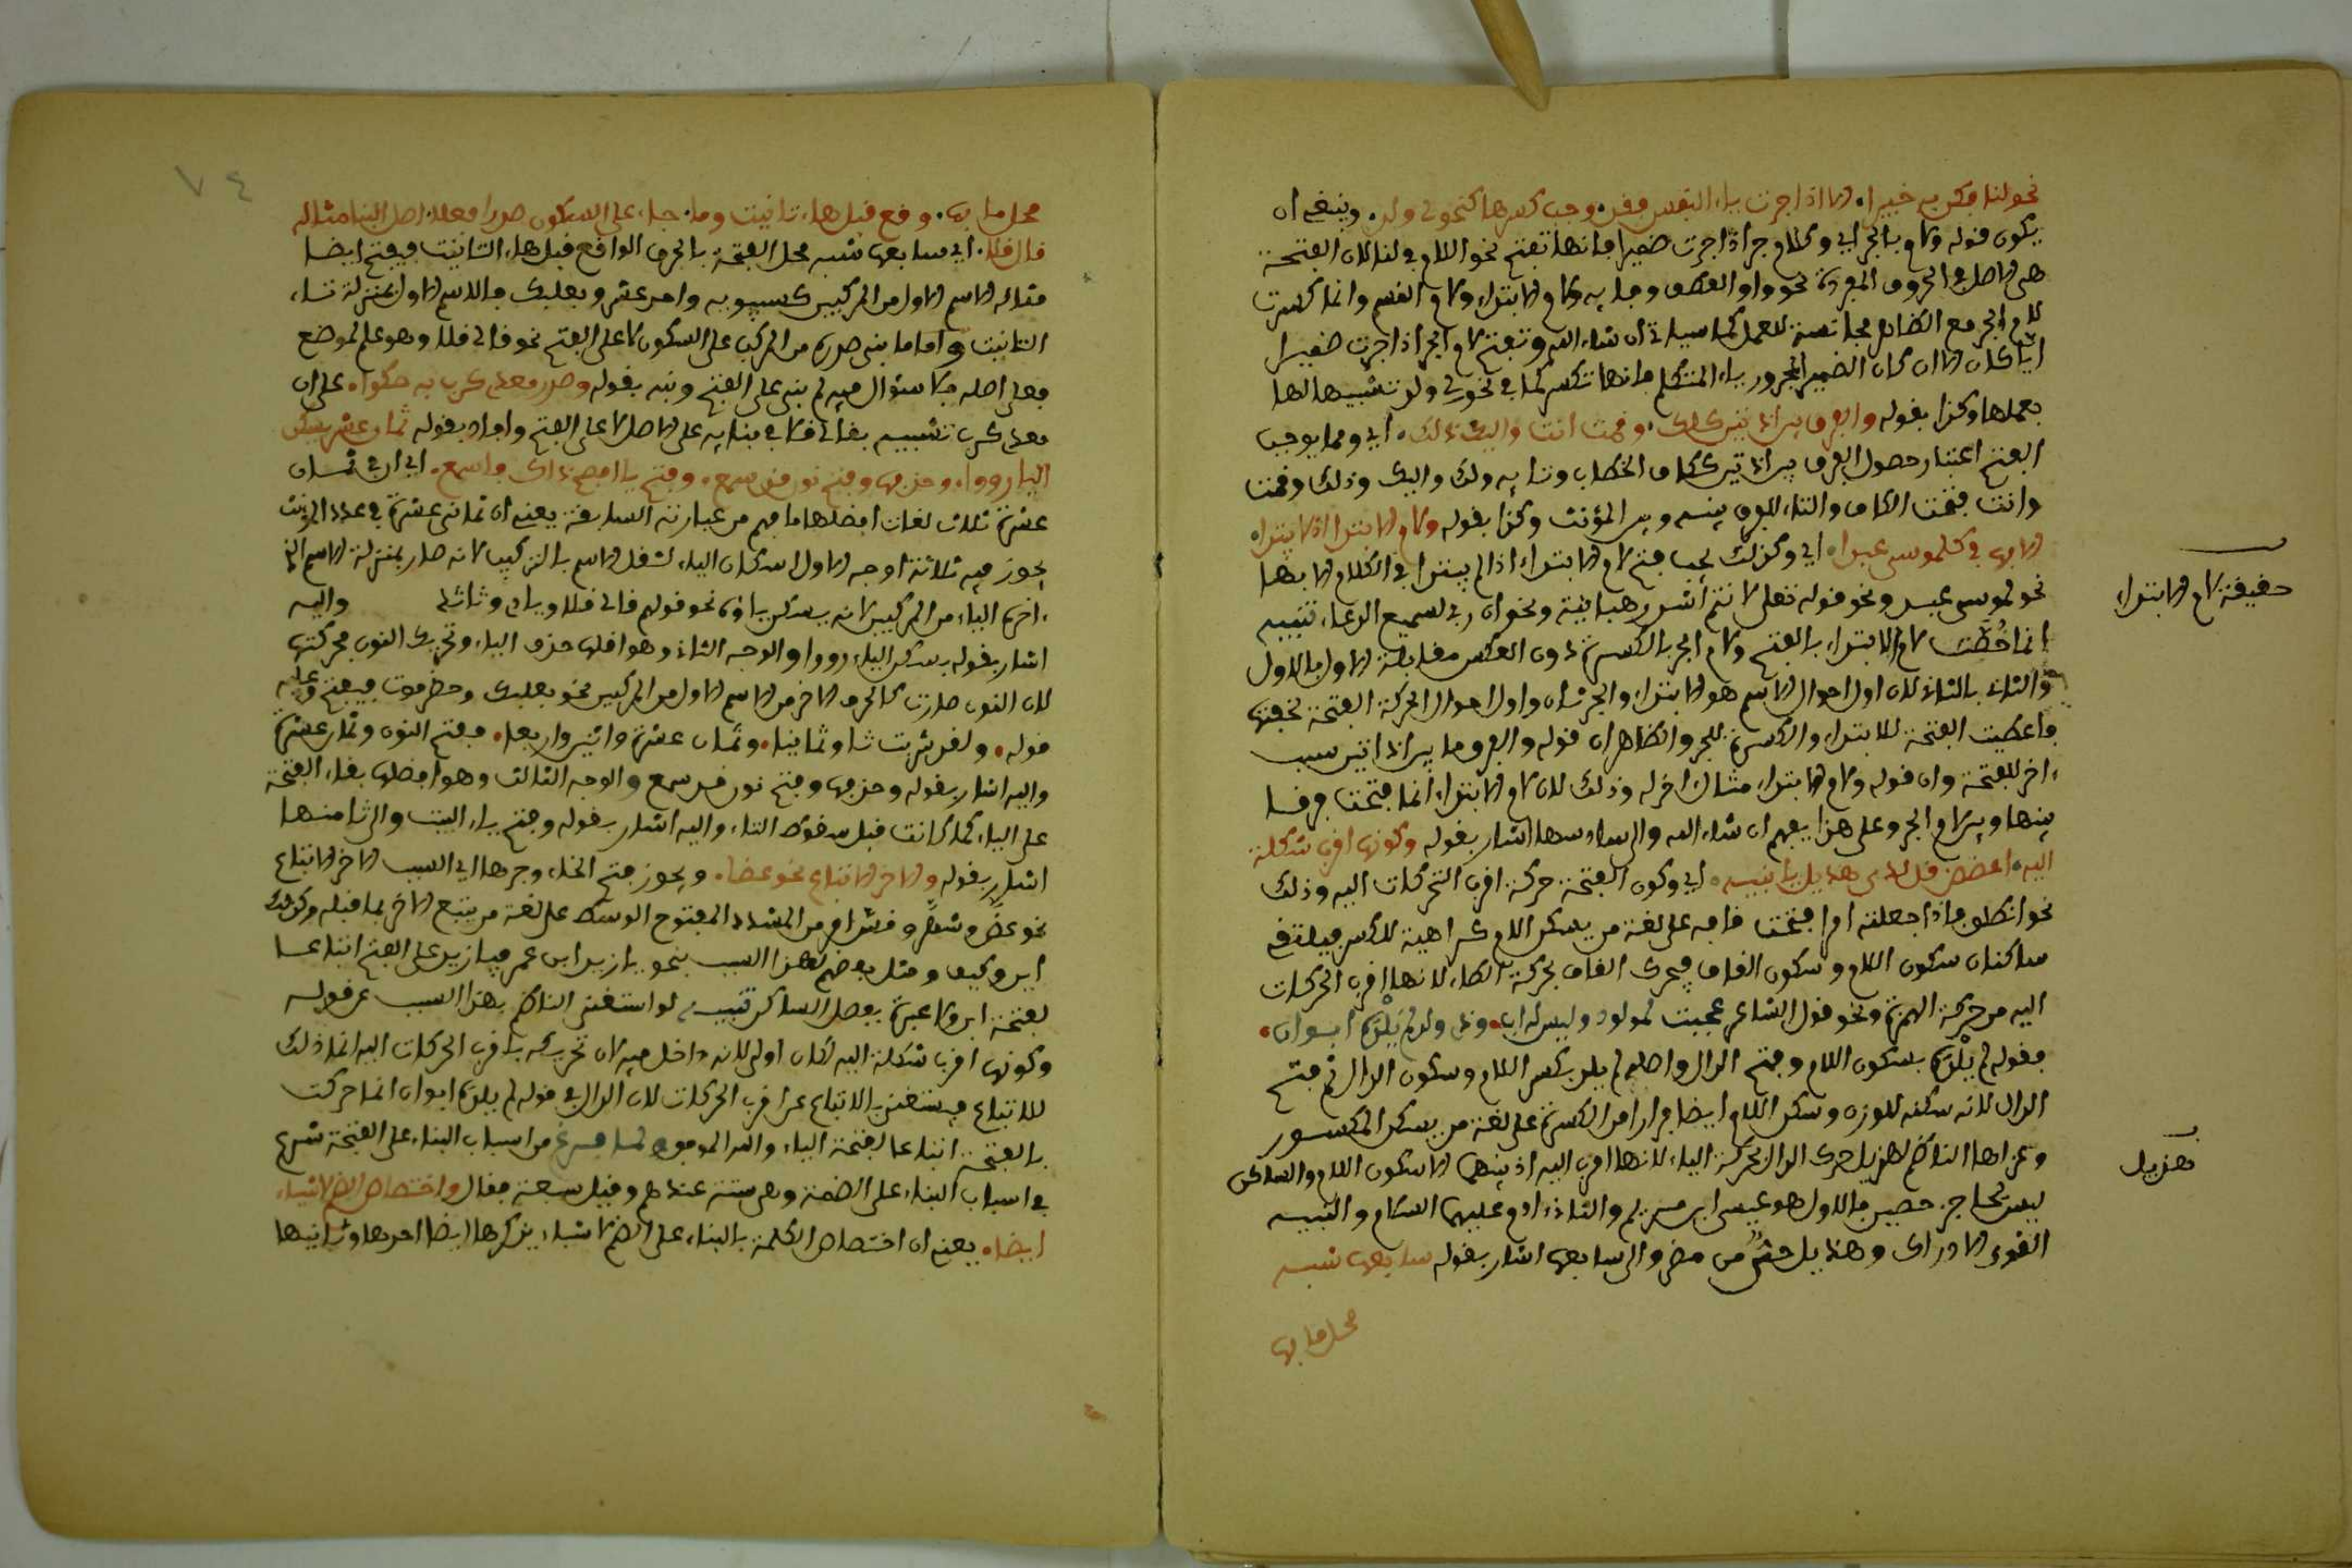 نحو لنا فكن به خبيرا. الا اذا جرت ياء النفس فقد. وجب كسرها كنحو لي ولد. وينبغي ان
يكون قوله ولام بالجر اي ولام جر اذا جرت ضميرا فانها تفتح نحو اللام في لنا لان الفتحة
هي الاصل في الحروف المفردة نحو واو العطف وفا به ولام الابتداء ولام القسم وانما كسرت
لام الجر مع الظاهر مجانسة للعمل كما سياتي ان شاء الله وتفتح لام الجر اذا جرت ضميرا
ايا كان الا ان كان الضمير المجرور ياء المتكلم فانها تكسر كما في نحو لي ولد تشبيها لها
بعملها وكذا بقوله والفرق بين اذا تين كلك. وقمت انت واليك ذلك. اي ومما يوجب
الفتح اعتبار حصول الفرق بين اداتين ككاف الخطاب وتا به ولك واليك وذلك وقمت
وانت فتحت الكاف والتاء للفرق بينه وبين المؤنث وكذا بقوله ولام الابتدا اذ لا يبتدا.
الا بها في كلموسى عبدا. اي وكذلك يجب فتح لام الابتداء اذ لم يبتدا في الكلام الا بها
نحو لموسى عبد ونحو قوله تعلى لانتم أشد رهبة ونحو ان ربي لسميع الدعاء تنبيه
انما خُصّت لام الابتداء بالفتح ولام الجر بالكسرة دون العكس مقابلة الاول بالاول
والثاني بالثاني لان اول احوال الاسم هو الابتداء والجر ثان واول احوال الحركة الفتحة لخفتها
فاعطيت الفتحة للابتداء والكسرة للجر والظاهر ان قوله والفرق ما بين اداتين سبب
ءاخر للفتحة وان قوله ولام الابتداء مثال اخر له وذلك لان لام الابتداء انما فتحت فرقا
بينها وبين لام الجر وعلى هذا يفهم ان شاء الله والى سادسها اشار بقوله وكونها اقرب شكلة
اليه. اي وكون الفتحة حركة اقرب التحركات اليه وذلك
نحو انطلق فاذا جعلته امرا فتحت قافه على لغة من يسكن اللام كراهية للكسر فيلتقي
ساكنان سكون اللام وسكون القاف فيحرك القاف بحركة الطاء لانها اقرب الحركات
اليه من حركة الهمزة ونحو قول الشاعر عجبت لمولود وليس له اب. وذي ولد لم يَلْدَهُ ابوان.
فقوله لم يَلْدَهُ بسكون اللام وفتح الدال واصله لم يلد بكسر اللام وسكون الدال ثم فتح
الدال لانه سكنه للوزن وسكن اللام ايضا فرارا من الكسرة على لغة من يسكن المكسور
وعزاها الناظم لهذيل حرك الدال بحركة الياء لانها اقرب اليه اذ بينهما الا سكون اللام والساكن
ليس بحاجز حصين فالاول هو عيسى ابن مريم والثاني ءادم عليهما السلام والتنبيه
القوي الادراك وهذيل حيٌّ من مضر والى سابعها اشار بقوله سابعها شبه
محل ما بها
حقيقة لام الابتداء
هذيل
٧٤
محل ما بها. وقع قبل هاء تانيث وما. جاء على السكون صدرا فعلا. اصل البنا مثاله
قال قلا. اي سابعها شبه محل الفتحة بالحرف الواقع قبل هاء التانيث فيفتح ايضا
مثاله الاسم الاول من المركبين كسيبويه واحد عشر وبعلبك فالاسم الاول بمنزلة تاء
التانيث واما ما بني صدره من المركب على السكون لا على الفتح نحو قالي قلا وهو علم لموضع
فعلى اصله فلا سؤال فيه لم بني على الفتح ونبه بقوله وصدر معدي كرب به حكوا. على ان
معدي كرب تشبيه بقالي قلا في بنايه على الاصل لا على الفتح واما بقوله ثمان عشر يسكن
اليا رووا. وحذفها وفتح نون قد سمع. وفتح يا افصح ذاك واسمع. اي ان في ثمان
عشرة ثلاث لغات افضلها ما فهم من عبارته السابقة يعني ان ثماني عشرة في عدد المؤنث
يجوز فيه ثلاثة اوجه الاول اسكان الياء لثقل الاسم بالتركيب لانه صار بمنزلة الاسم الذي
ءاخره الياء من المركبين لانه يسكن ياؤه نحو قولهم قالي قلا وبادي وثالثي واليه
اشار بقوله يسكن الياء رووا والوجه الثاني وهو اقلها حذف الياء وتحريك النون بحركتها
لان النون صارت كالحرف الاخر من الاسم الاول من المركبين نحو بعلبك وحضرموت فيفتح وعليه
قوله. ولقد شربت ثمانيا وثمانيا. وثمان عشرة واثنين واربعا. بفتح النون وثمان عشرة
واليه اشار بقوله وحذفها وفتح نون قد سمع والوجه الثالث وهو افضلها بقاء الفتحة
على الياء كما كانت قبل سقوط التاء واليه اشار بقوله وفتح ياء البيت والى ثامنها
اشار بقوله والاخر الاتباع نحو عضا. ويجوز فتح الخاء وجرها اي السبب الاخر الاتباع
نحو عضَّ وشمَّ وفش امر من المشدد المفتوح الوسط على لغة من يتبع الاخر بما قبله وكذلك
اين وكيف ومثل بعضهم لهذا السبب بنحو يا زيد ابن عمر فيا زيد على الفتح اتباعا
لفتحة ابن ولا عبرة بفصل الساكن تنبيه لو استغنى الناظم بهذا السبب عن قوله
وكونها اقرب شكلة اليه لكان اولى لانه داخل فيه لان تحريكه باقرب الحركات اليه انما ذلك
للاتباع فيستغنى بالاتباع عن اقرب الحركات لان الدال في قوله لم يلده ابوان انما حركت
بالفتحة اتباعا لفتحة الياء والله الموفق ولما فرغ من اسباب البناء على الفتحة شرع
في اسباب البناء على الضمة وهي ستة عندهم وقيل سبعة فقال واختصاص الضم لاشياء
ايضا. يعني ان اختصاص الكلمة بالبناء على الضم لاشياء يذكرها ايضا احدها وثانيها